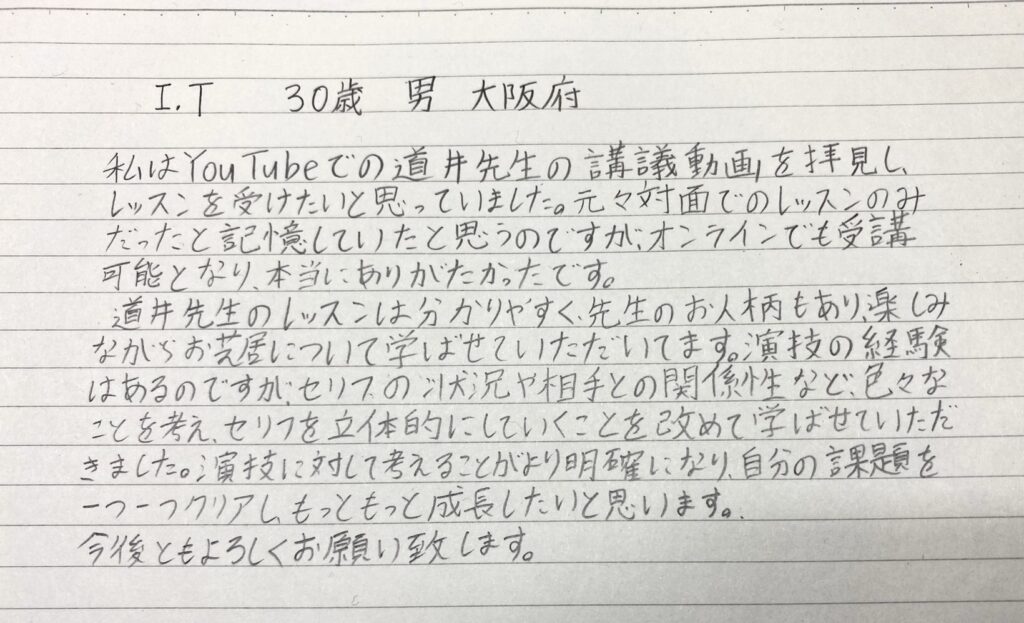 I.T 30歳 男 大阪府
私はYouTubeでの道井先生の講議動画を拝見し、
レッスンを受けたいと思っていました。元々対面でのレッスンのみ
だったと記憶していたと思うのですが、オンラインでも受講
可能となり、本当にありがたかったです。
道井先生のレッスンは分かりやすく、先生のお人柄もあり、楽しみ
ながらお芝居について学ばせていただいてます。演技の経験
はあるのですが、セリフの状況や相手との関係性など、色々な
ことを考え、セリフを立体的にしていくことを改めて学ばせていただ
きました。演技に対して考えることがより明確になり、自分の課題を
一つ一つクリアし、もっともっと成長したいと思います。
今後ともよろしくお願い致します。